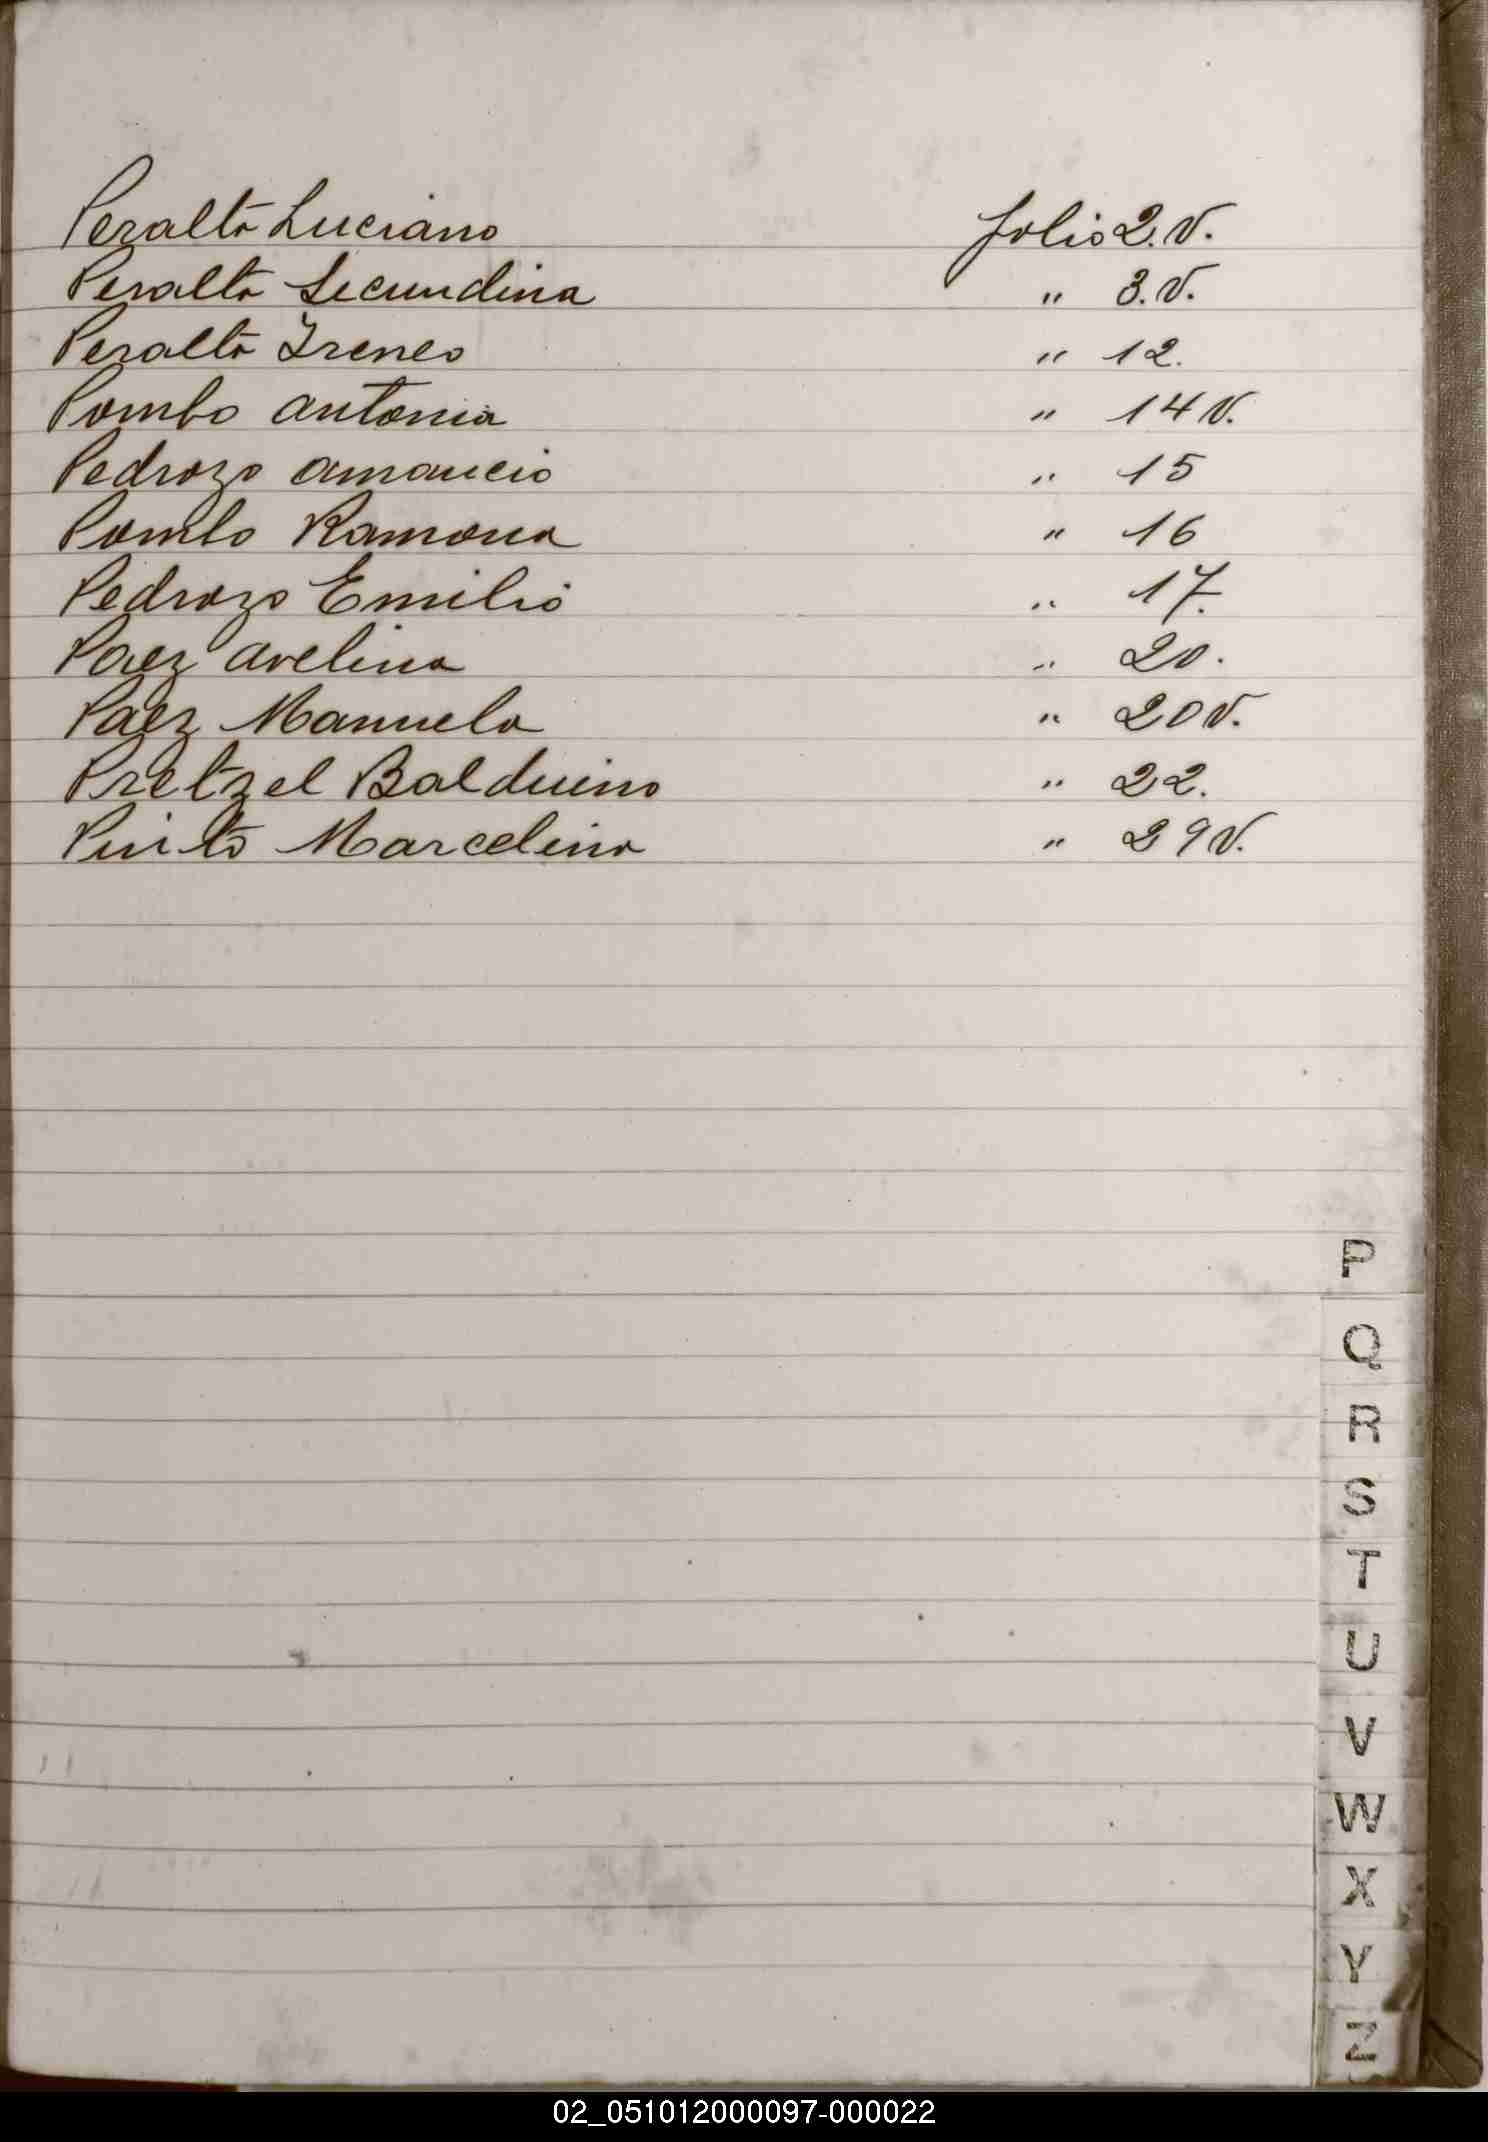 Peralta Luciano folio 2.V.
Peralta Secundina " 3.V.
Peralta Ireneo " 12.
Pombo Antonia " 14 V.
Pedrozo Amancio " 15
Pombo Ramona " 16
Pedrozo Emilio " 17.
Paez Avelina " 20.
Paez Manuela " 20 V.
Pretzel Balduino " 22.
Pinto Marcelino " 29 V.
P
Q
R
S
T
U
V
W
X
Y
Z
02_051012000097-000022